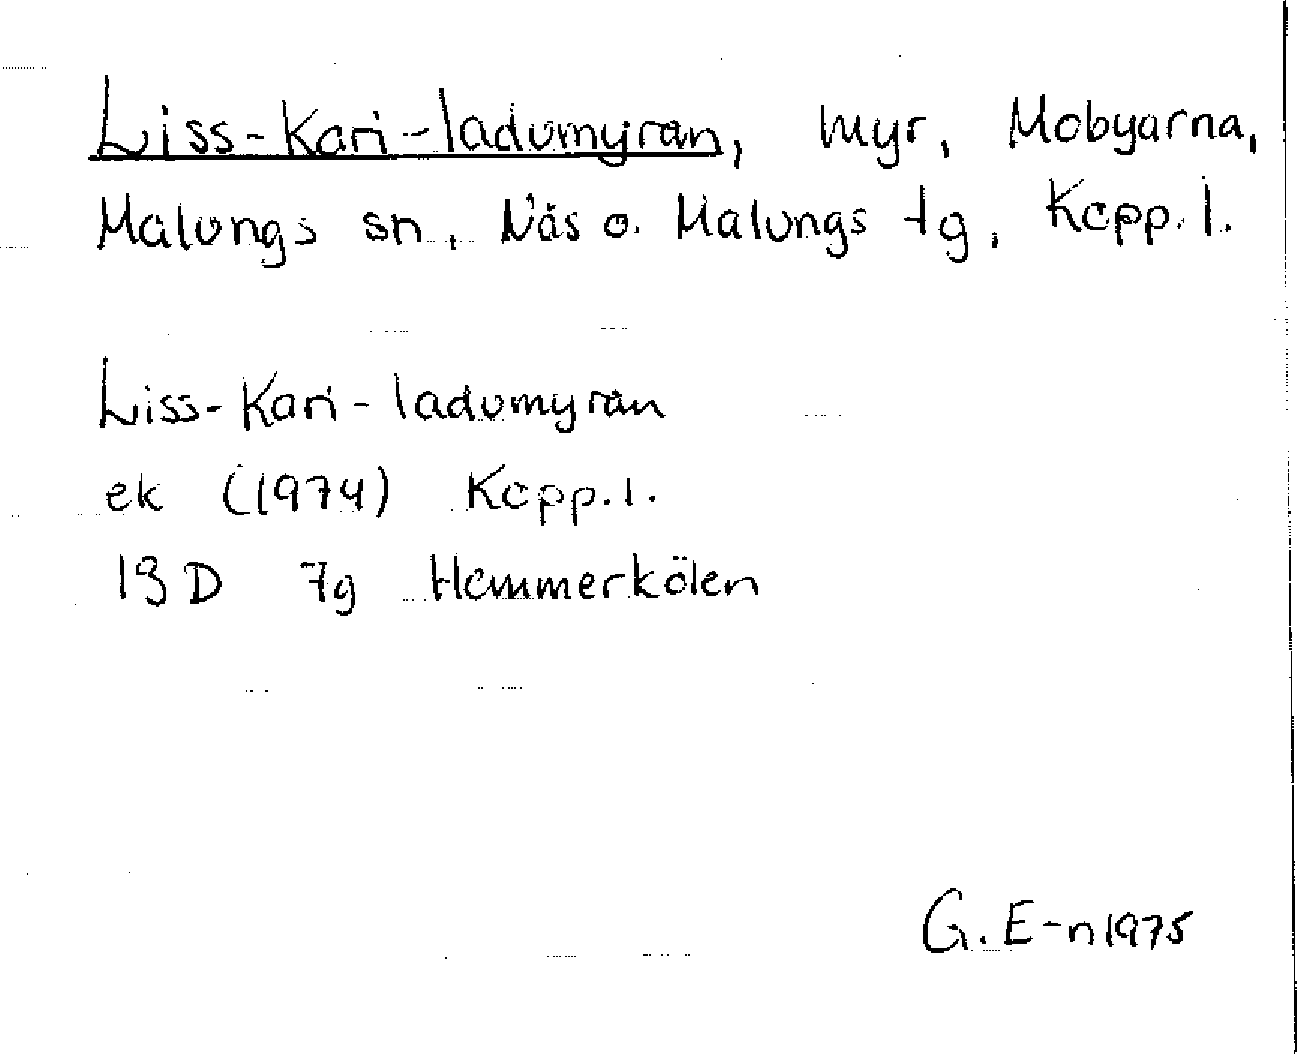 Liss-Kari-ladumyran, myr, Mobyarna,
Malungs sn., Näs o. Malungs tg, Kopp. l.
Liss-Kari-ladumyran
ek (1974) Kopp. l.
13 D 7g Hemmerkölen
G. E-n 1975